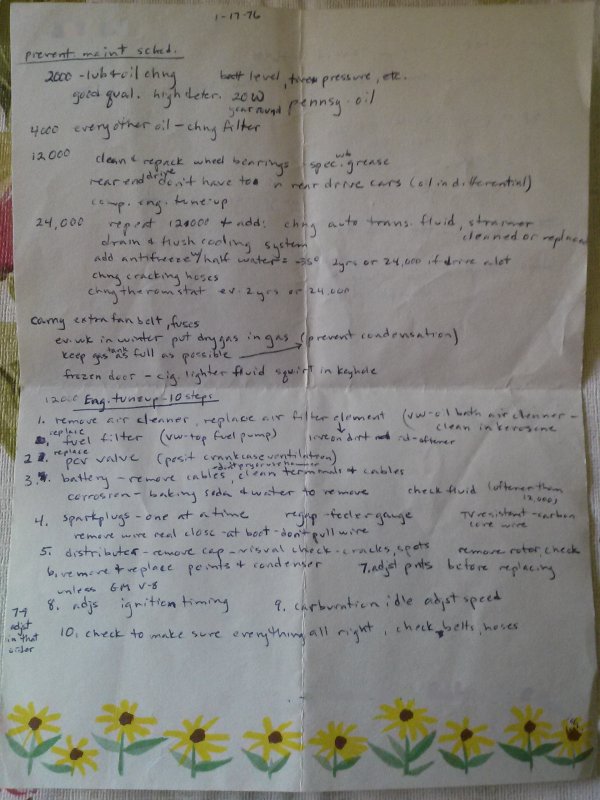 1-17-76
prevent. maint sched.
2000 - lub & oil chng batt level, tire pressure, etc.
good qual. high deter. 20W pennsy. oil
year round
4000 every other oil - chng filter
12,000 clean & repack wheel bearings - spec. wb grease
rear end drive don't have to in rear drive cars (oil in differential)
comp. eng. tune-up
24,000 repeat 12000 & add: chng auto trans. fluid, strainer
cleaned or replaced
drain & flush cooling system
add antifreeze w/ half water = -35° 2yrs or 24,000 if drive alot
chng cracking hoses
chng thermostat ev. 2 yrs or 24,000
carry extra fan belt, fuses
ev. wk in winter put dry gas in gas (prevent condensation)
keep gas tank as full as possible
frozen door - cig. lighter fluid squirt in keyhole
12000 Eng. tuneup - 10 steps
1. remove air cleaner, replace air filter element (vw - oil bath air cleaner -
clean in kerosene
replace fuel filter (vw - top fuel pump) live on dirt rd - oftener
2. replace pcv valve (posit crankcase ventilation)
3. battery - remove cables, clean terminals & cables
corrosion - baking soda & water to remove check fluid (oftener than
12,000)
4. sparkplugs - one at a time regap - feeler gauge TV resistent - carbon
core wire
remove wire real close - at boot - don't pull wire
5. distributer - remove cap - visual check - cracks, spots remove rotor, check
6. remove & replace points & condenser 7. adjst pnts before replacing
unless GM V-8
8. adjs ignition timing 9. carburation idle adjst speed
7-9
adjst
in that
order
10. check to make sure everything all right, check belts, hoses